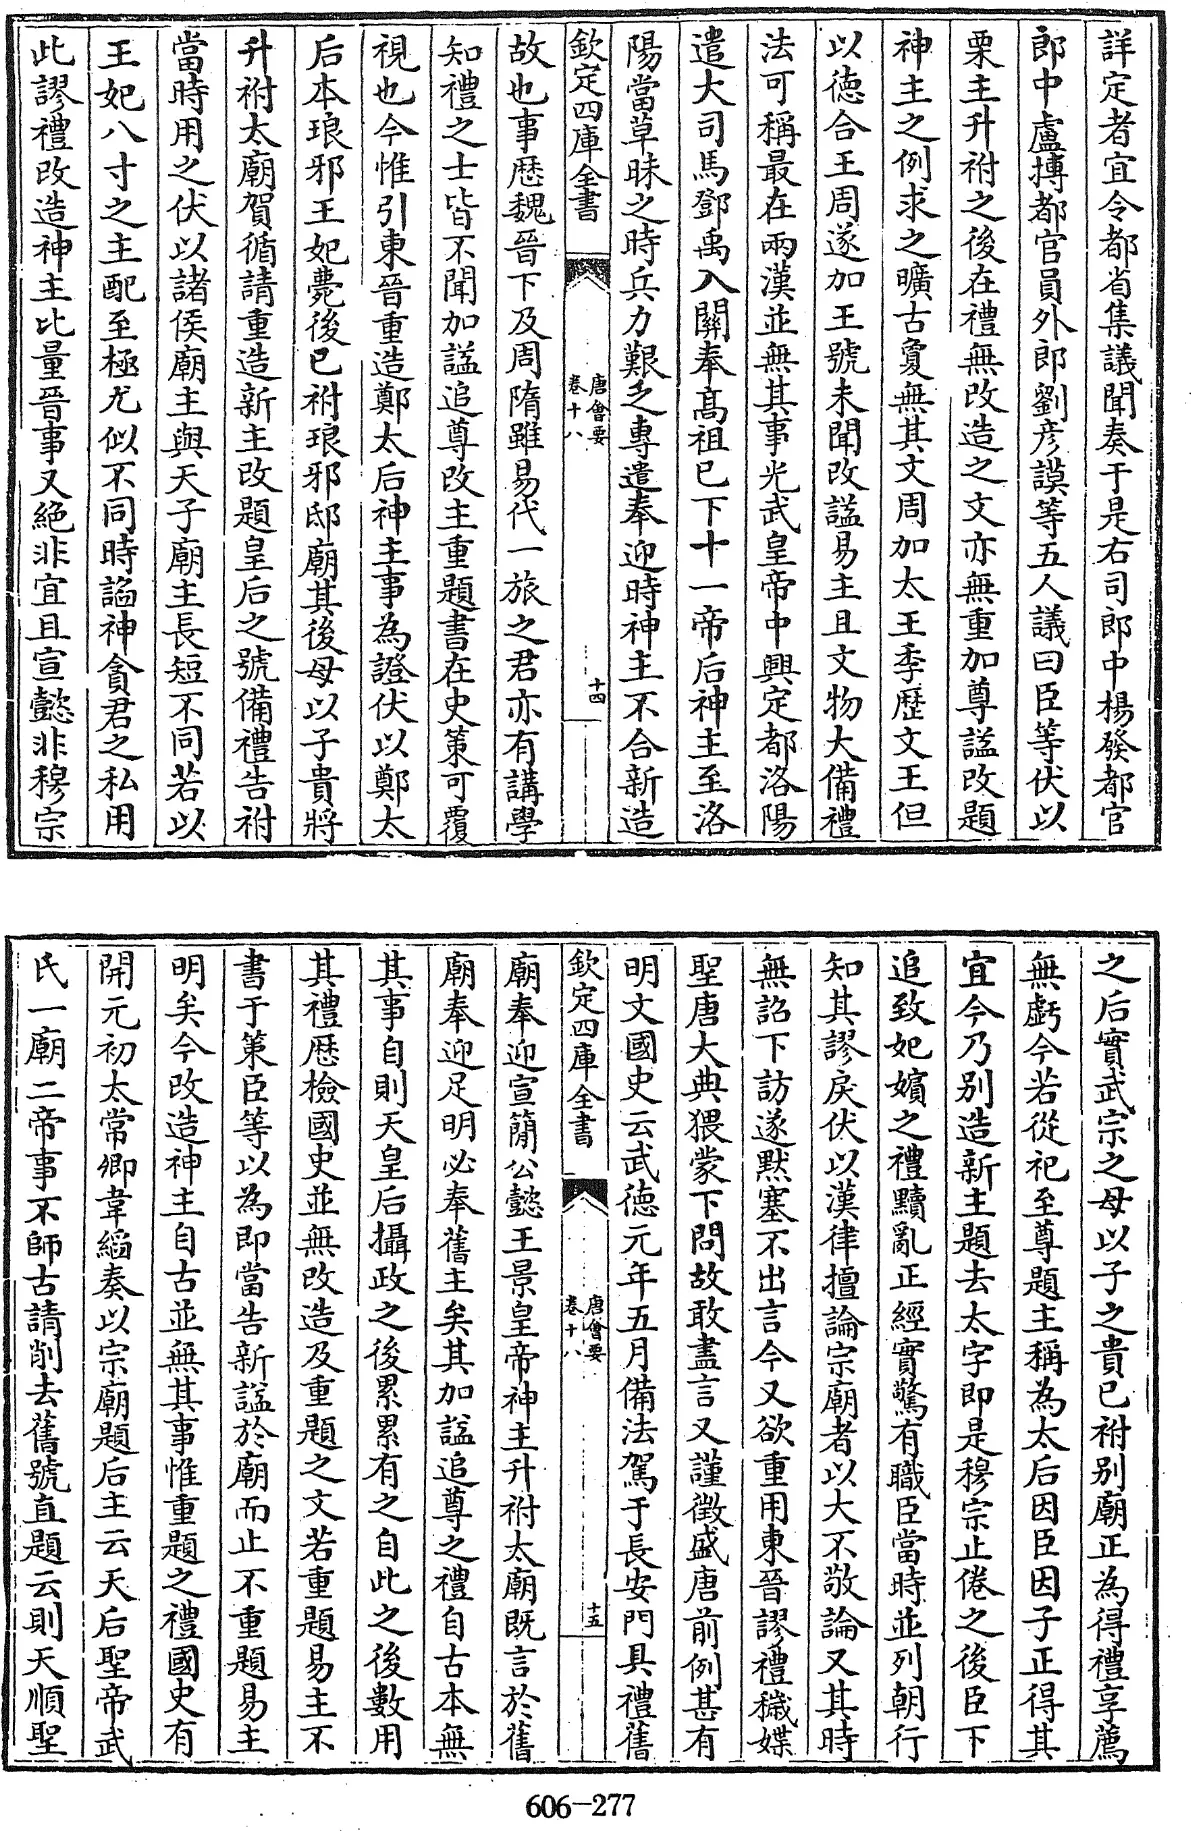 詳定者宜令都省集議聞奏于是右司郎中楊發都官
郎中盧摶都官員外郎劉彦謨等五人議曰臣等伏以
栗主升祔之後在禮無改造之文亦無重加尊諡改題
神主之例求之曠古敻無其文周加太王季歷文王但
以德合王周遂加王號未聞改諡易主且文物大備禮
法可稱最在兩漢並無其事光武皇帝中興定都洛陽
遣大司馬鄧禹入關奉髙祖已下十一帝后神主至洛
陽當草昧之時兵力艱乏專遣奉迎時神主不合新造
欽定四庫全書
唐會要
卷十八
十四
故也事歴魏晉下及周隋雖易代一旅之君亦有講學
知禮之士皆不聞加諡追尊改主重題書在史策可覆
視也今惟引東晉重造鄭太后神主事為證伏以鄭太
后本琅邪王妃薨後已祔琅邪邸廟其後母以子貴將
升祔太廟賀循請重造新主改題皇后之號備禮告祔
當時用之伏以諸侯廟主與天子廟主長短不同若以
王妃八寸之主配至極尤似不同時諂神貪君之私用
此謬禮改造神主比量晉事又絶非宜且宣懿非穆宗
之后實武宗之母以子之貴已祔别廟正為得禮享薦
無虧今若從祀至尊題主稱為太后因臣因子正得其
宜今乃别造新主題去太字即是穆宗上僊之後臣下
追致妃嬪之禮黷亂正經實驚有職臣當時並列朝行
知其謬戾伏以漢律擅論宗廟者以大不敬論又其時
無詔下訪遂默塞不出言今又欲重用東晉謬禮穢媟
聖唐大典猥蒙下問故敢盡言又謹徵盛唐前例甚有
明文國史云武徳元年五月備法駕于長安門具禮舊
欽定四庫全書
唐會要
卷十八
十五
廟奉迎宣簡公懿王景皇帝神主升祔太廟既言於舊
廟奉迎足明必奉舊主矣其加諡追尊之禮自古本無
其事自則天皇后攝政之後累累有之自此之後數用
其禮歴檢國史並無改造及重題之文若重題易主不
書于策臣等以為即當告新諡於廟而止不重題易主
明矣今改造神主自古並無其事惟重題之禮國史有
開元初太常卿韋縚奏以宗廟題后主云天后聖帝武
氏一廟二帝事不師古請削去舊號直題云則天順聖
606-277